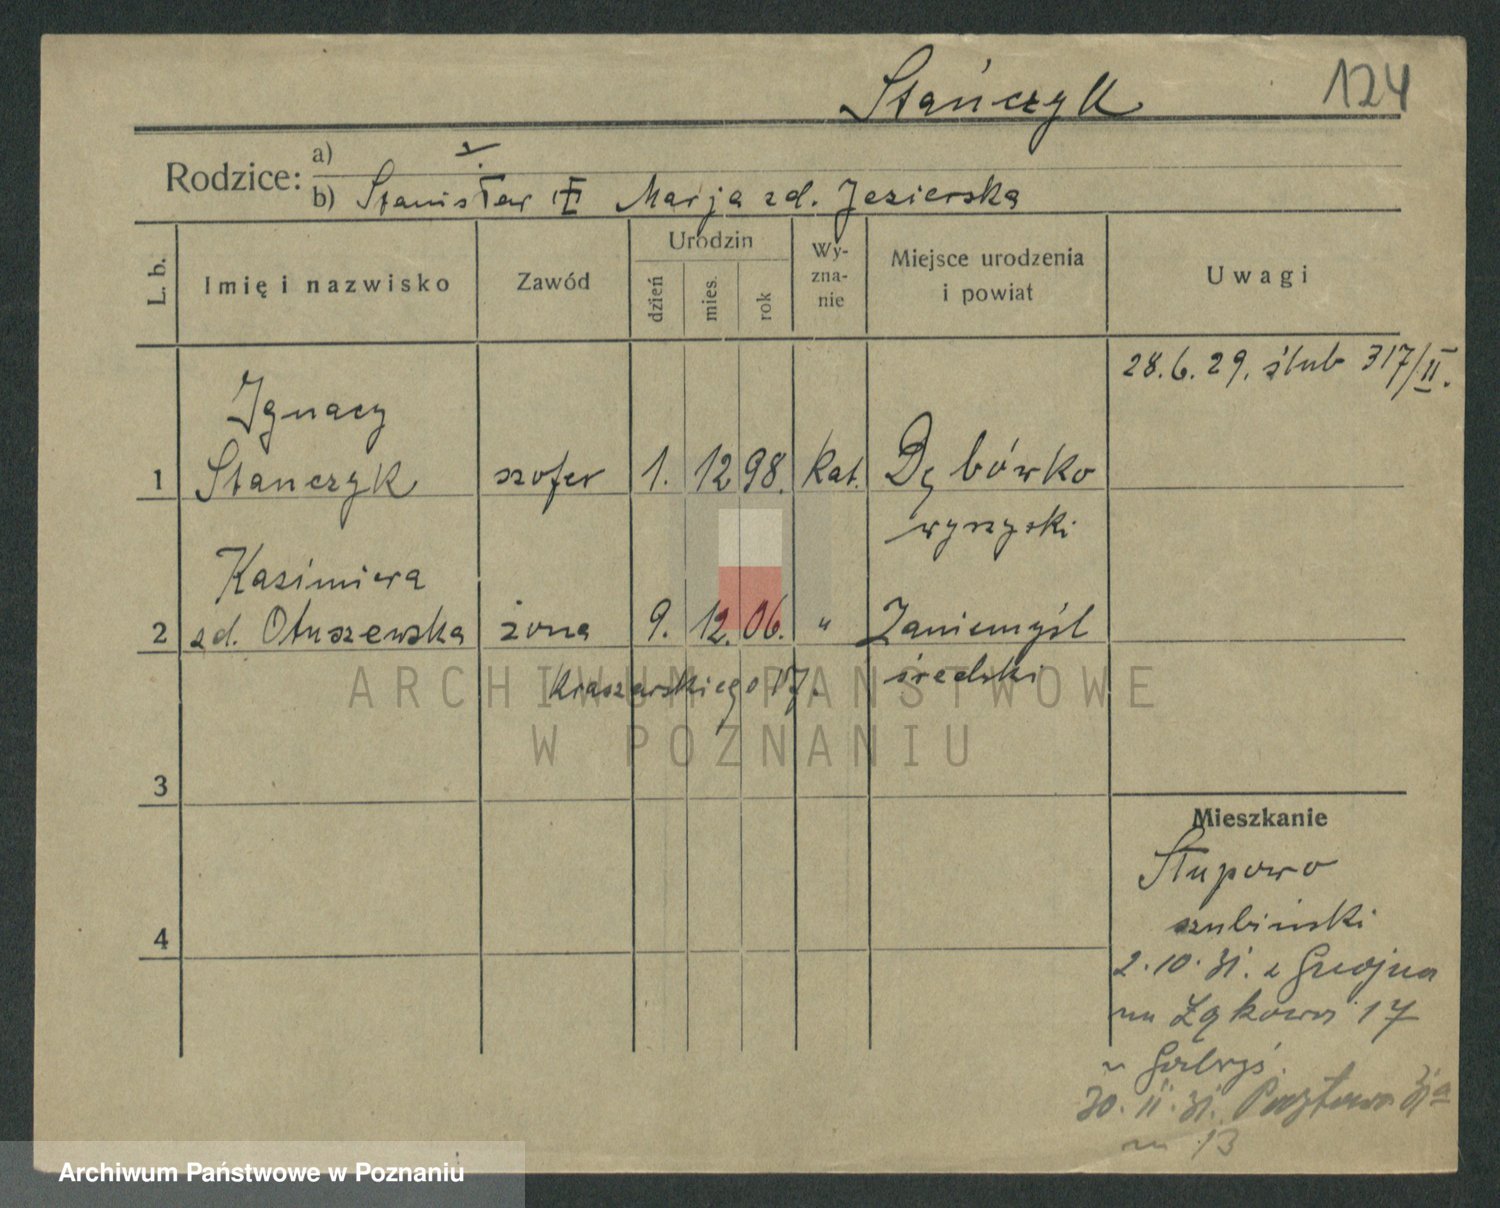 Stańczyk 124
Rodzice: a)
b) Stanisław Marja zd. Jezierska
L. b. Imię i nazwisko Zawód Urodzin dzień mies. rok Wy-zna-nie Miejsce urodzenia i powiat Uwagi
28.6.29. ślub 317/II.
Ignacy
1 Stańczyk szofer 1. 12 98. kat. Dębówko
wyrzyski
Kazimiera
2 zd. Otuszewska żona 9. 12. 06. " Zaniemyśl
Kraszewskiego 17. średzki
ARCHIWUM PAŃSTWOWE
W POZNANIU
3
Mieszkanie
Słupowo
szubiński
4
2.10.31. z Gnojna
na Łąkowa 17
30.11.31. Pocztowa 31a
m 13
Archiwum Państwowe w Poznaniu